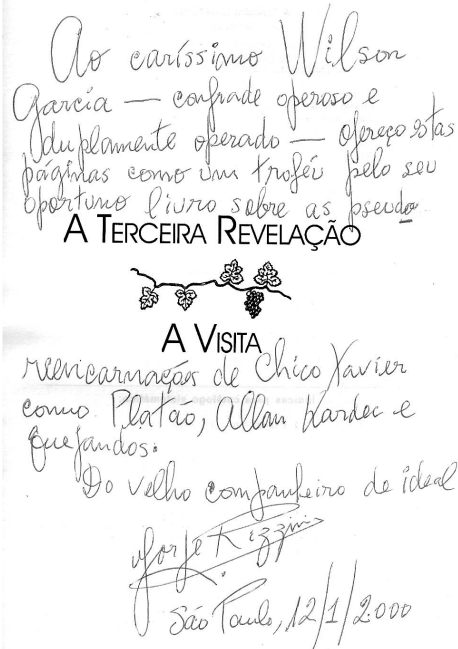 Ao caríssimo Wilson
Garcia — confrade operoso e
duplamente operado — ofereço estas
páginas como um troféu pelo seu
oportuno livro sobre as pseudo
A TERCEIRA REVELAÇÃO
A VISITA
reencarnações de Chico Xavier
como Platão, Allan Kardec e
quejandos.
Do velho companheiro de ideal
Jorge Rizzini
São Paulo, 12/1/2.000